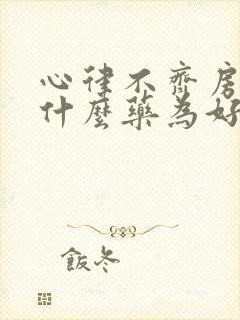 心律不齊房
什麼藥為好
飯冬